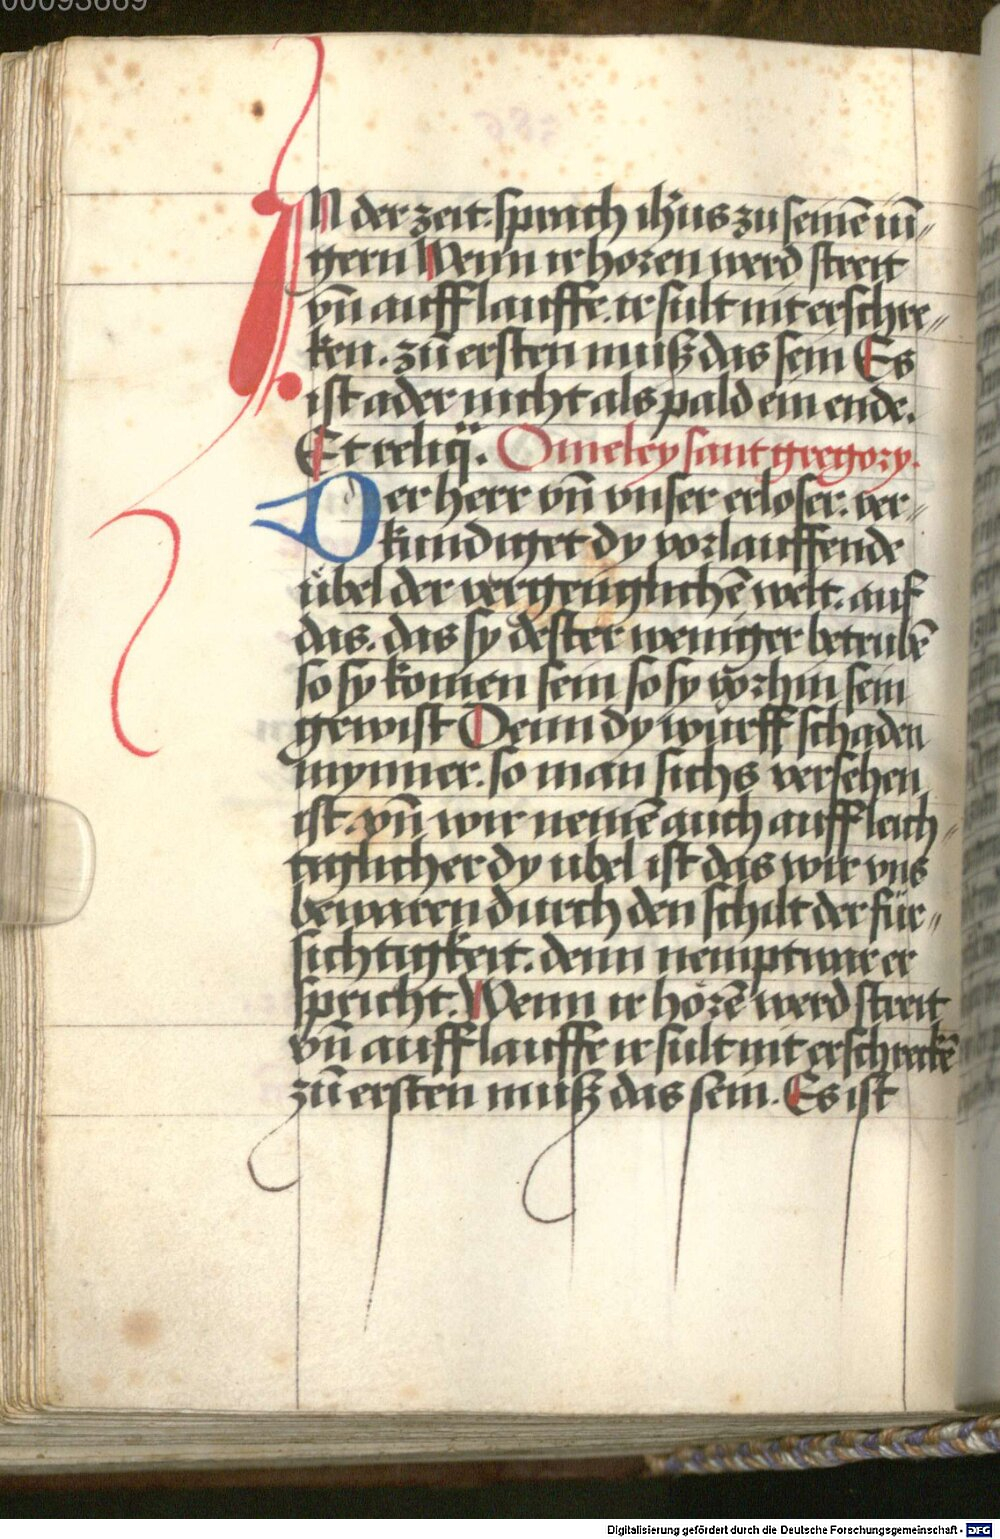 00093669
IN der zeit. sprach ih̄us zu seinē iū//
gern Wenn ir horen werd streit
vn̄ aufflauffe. ir sult nit erschre//
ken. zū ersten muß das sein Es
ist ader nicht als pald ein ende.
Et reliq̄. Omeley sant gregory.
Der herr vn̄ vnser erloser. ver//
kundiget dy vorlauffende
übel der vergenglichē welt. auf
das. das sy dester weniger betrubē
so sy komen sein so sy vorhin sein
gewist Denn dy wurff schaden
mynner. so man sichs versehen
ist. vn̄ wir nemē auch auff leich//
tiglicher dy ubel ist das wir vns
bewaren durch den schilt der für//
sichtigkeit. denn nempt war er
spricht. Wenn ir horē werd streit
vn̄ aufflauffe ir sult nit erschreckē
zū ersten muß das sein. Es ist
Digitalisierung gefördert durch die Deutsche Forschungsgemeinschaft - DFG